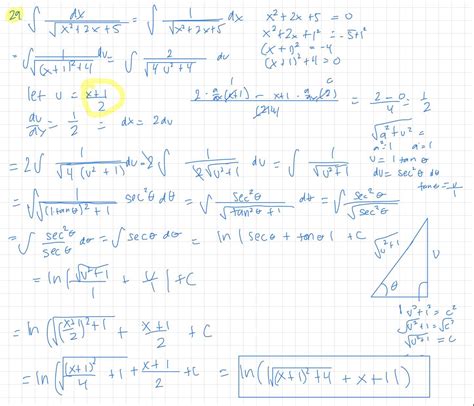 29 ∫ dx/√(x²+2x+5) = ∫ 1/√(x²+2x+5)
x²+2x+5 = 0
x²+2x+1² = -5+1²
(x+1)² = -4
(x+1)²+4 = 0
= ∫ 1/√((x+1)²+4) dx = ∫ 2/√(4u²+4) du
let u = (x+1)/2
= (2-0)/4 = 1/2
du/dx = 1/2 = dx = 2du
√(a²+u²) =
a=1 a=1
u = 1 tanθ
du = sec²θ dθ
tanθ = u/1
= 2∫ 1/√(4(u²+1)) du = 2∫ 1/(2√(u²+1)) du = ∫ 1/√(u²+1)
= ∫ 1/√((1tanθ)²+1) sec²θ dθ = ∫ sec²θ/√(tan²θ+1) dθ = ∫ sec²θ/√(sec²θ)
= ∫ sec²θ/secθ dθ = ∫ secθ dθ = ln|secθ + tanθ| + C
√(u²+1) u
θ
1
= ln|√(u²+1)/1 + u/1| + C
u²+1² = c²
√(u²+1) = √c²
√(u²+1) = c
= ln(√(((x+1)/2)²+1) + (x+1)/2 + C
= ln(√((x+1)²/4 + 1) + (x+1)/2 + C = ln(|√((x+1)²+4) + x+1|)